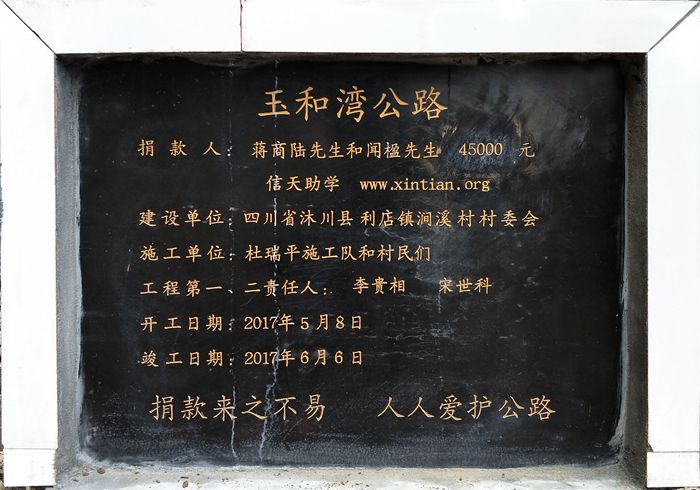 玉和湾公路
捐款人：蒋商陆先生和闻楹先生 45000 元
信天助学 www.xintian.org
建设单位：四川省沐川县利店镇涧溪村村委会
施工单位：杜瑞平施工队和村民们
工程第一、二责任人：李贵相 宋世科
开工日期：2017年5月8日
竣工日期：2017年6月6日
捐款来之不易 人人爱护公路